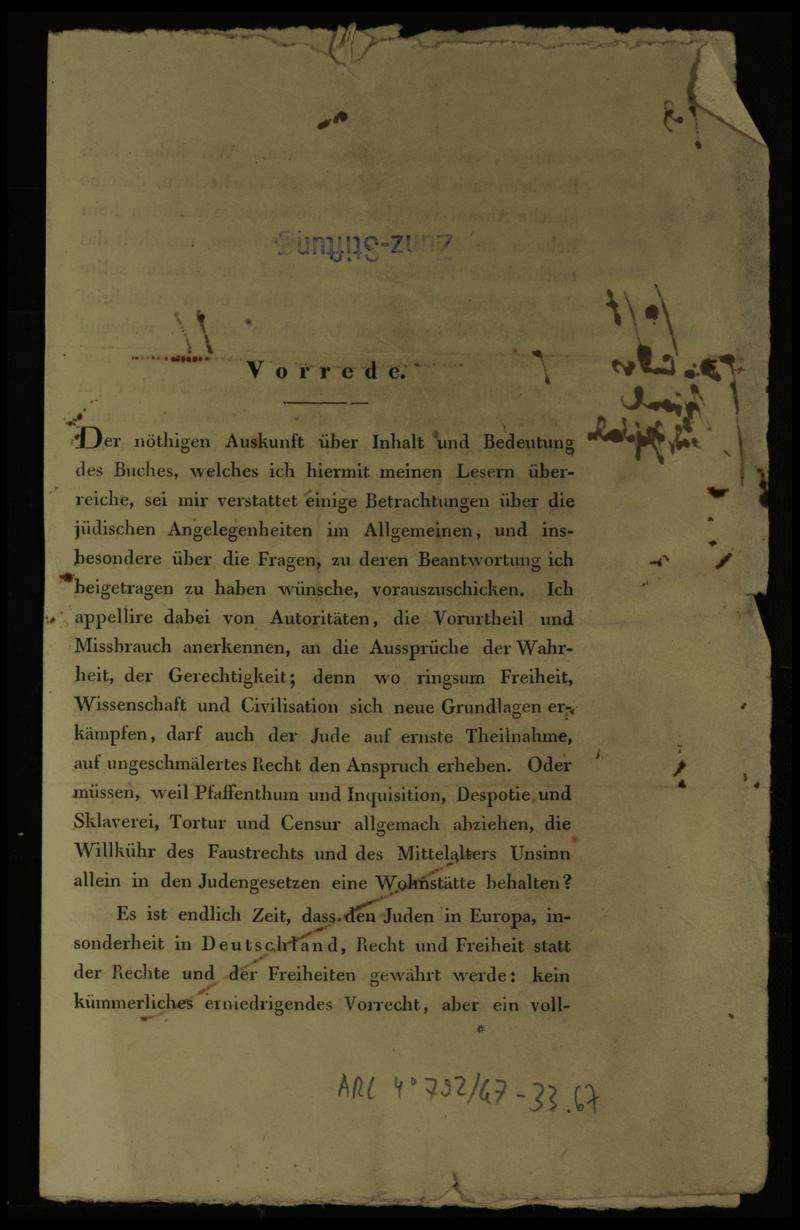 Zunz-Stiftung
Vorrede.
Der nöthigen Auskunft über Inhalt und Bedeutung
des Buches, welches ich hiermit meinen Lesern über-
reiche, sei mir verstattet einige Betrachtungen über die
jüdischen Angelegenheiten im Allgemeinen, und ins-
besondere über die Fragen, zu deren Beantwortung ich
beigetragen zu haben wünsche, vorauszuschicken. Ich
appellire dabei von Autoritäten, die Vorurtheil und
Missbrauch anerkennen, an die Aussprüche der Wahr-
heit, der Gerechtigkeit; denn wo ringsum Freiheit,
Wissenschaft und Civilisation sich neue Grundlagen er-
kämpfen, darf auch der Jude auf ernste Theilnahme,
auf ungeschmälertes Recht den Anspruch erheben. Oder
müssen, weil Pfaffenthum und Inquisition, Despotie und
Sklaverei, Tortur und Censur allgemach abziehen, die
Willkühr des Faustrechts und des Mittelalters Unsinn
allein in den Judengesetzen eine Wohnstätte behalten?
Es ist endlich Zeit, dass den Juden in Europa, in-
sonderheit in Deutschland, Recht und Freiheit statt
der Rechte und der Freiheiten gewährt werde: kein
kümmerliches erniedrigendes Vorrecht, aber ein voll-
*
ARC 4° 792/G7-33.67